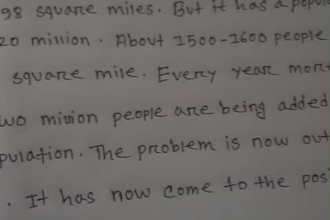 98 square miles. But it has a popu
20 million. About 1500-1600 people
square mile. Every year mor
wo million people are being added
pulation. The problem is now out
. It has now come to the pos